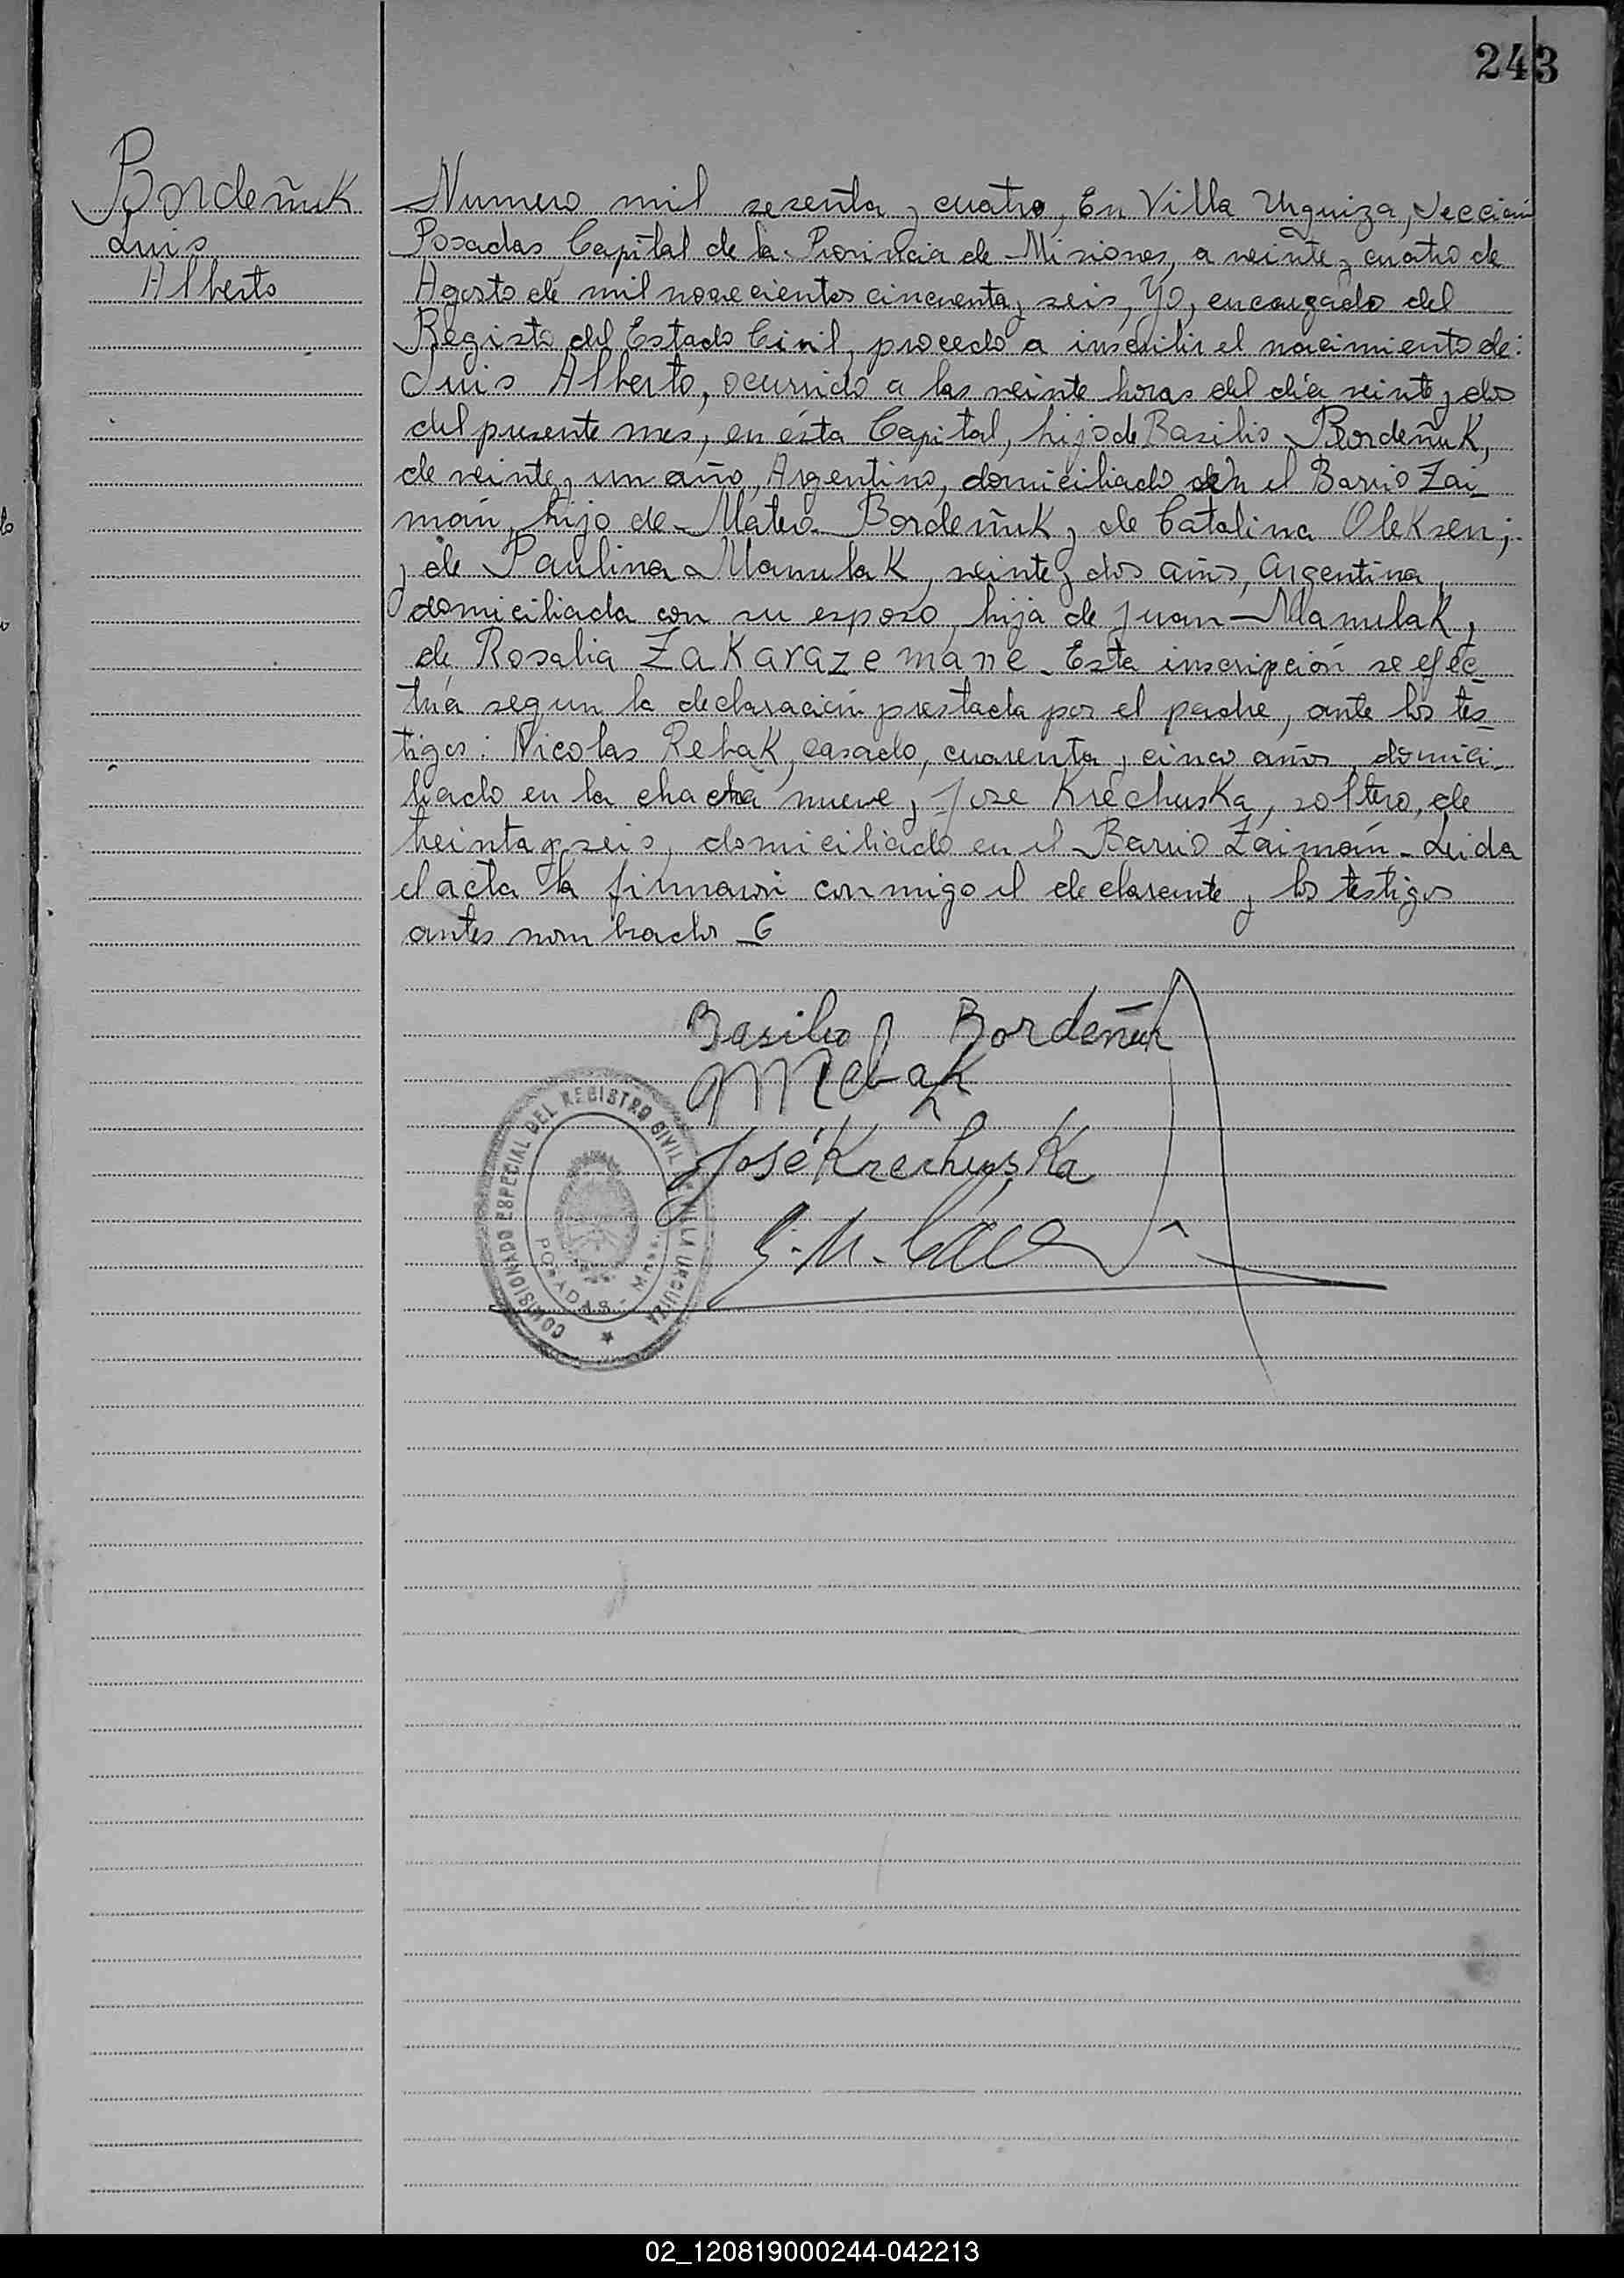 243
Bordeñuk
Luis
Alberto
Numero mil sesenta y cuatro, En Villa Urquiza, Sección
Posadas Capital de la Provincia de Misiones, a veinte y cuatro de
Agosto de mil novecientos cincuenta y seis, Yo, encargado del
Registro del Estado Civil, procedo a inscribir el nacimiento de:
Luis Alberto, ocurrido a las veinte horas del día veinte y dos
del presente mes, en ésta Capital, hijo de Basilio Bordeñuk,
de veinte y un año, Argentino, domiciliado en el Barrio Zai-
mán, hijo de Mateo Bordeñuk y de Catalina Oleksen;
y de Paulina Mamulak, veinte y dos años, Argentina,
domiciliada con su esposo, hija de Juan Mamulak y
de Rosalia Zakarazemane. Esta inscripción se efec-
túa segun la declaración prestada por el padre, ante los tes-
tigos: Nicolas Rebak, casado, cuarenta y cinco años, domici-
liado en la chacra nueve y Jose Krechuska, soltero, de
treinta y seis, domiciliado en el Barrio Zaimán. Leida
el acta la firmaron conmigo el declarante y los testigos
antes nombrados
Basilio Bordeñuk
Rebak
José Krechuska
COMISIONADO ESPECIAL DEL REGISTRO CIVIL DE VILLA URQUIZA
POSADAS - Mnes.
02_120819000244-042213